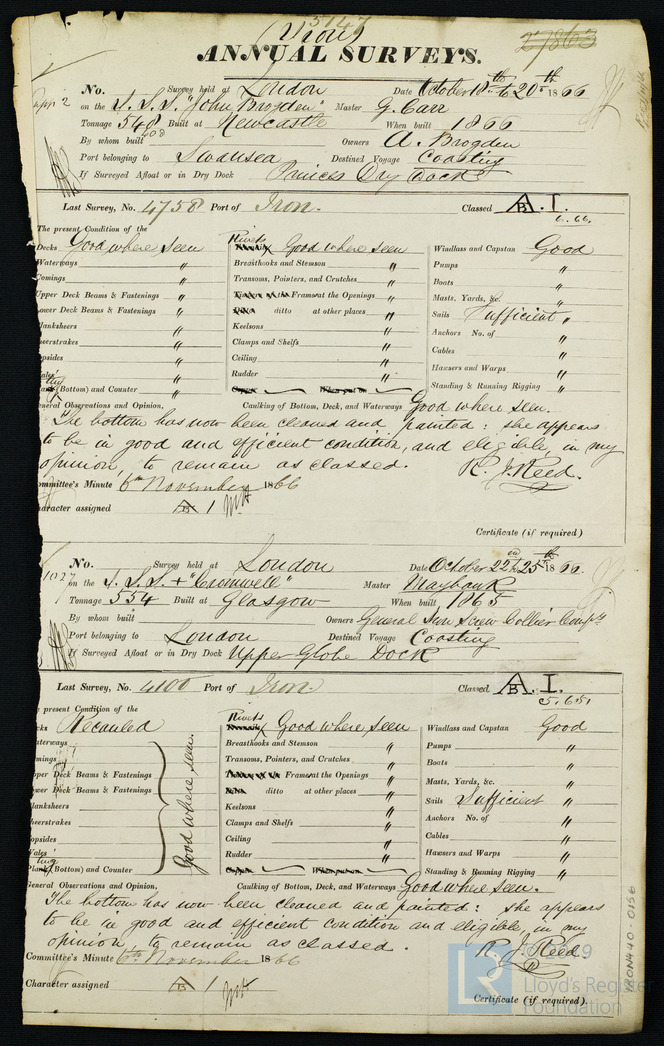 5147
(Iron)
27863
ANNUAL SURVEYS.
No. Survey held at London Date October 18th to 20th 1866
on the S.S.S. "John Brogden" Master G. Carr
Tonnage 548 Built at Newcastle When built 1866
By whom built Owners A. Brogden
Port belonging to Swansea Destined Voyage Coasting
If Surveyed Afloat or in Dry Dock Princes Dry Dock
Last Survey, No. 4758 Port of Iron. Classed A B. 1.
6.66.
The present Condition of the
Decks Good where seen Rivets Good where seen Windlass and Capstan Good
Waterways " Breasthooks and Stemson " Pumps "
Comings " Transoms, Pointers, and Crutches " Boats "
Upper Deck Beams & Fastenings " Frames at the Openings " Masts, Yards, &c. "
Lower Deck Beams & Fastenings " ditto at other places " Sails Sufficient "
Planksheers " Keelsons " Anchors No. of "
Sheerstrakes " Clamps and Shelfs " Cables "
Topsides " Ceiling " Hawsers and Warps "
Wales " Rudder " Standing & Running Rigging "
(Bottom) and Counter "
General Observations and Opinion, Caulking of Bottom, Deck, and Waterways Good where seen.
The bottom has now been cleaned and painted: she appears
to be in good and efficient condition, and eligible, in my
opinion, to remain as classed. R. J. Reed.
Committee's Minute 6th November 1866
Character assigned A B 1
Certificate (if required)
No. Survey held at London Date October 22nd 25th 1866
on the S.S.S. + "Cromwell" Master Maybank
Tonnage 554 Built at Glasgow When built 1865
By whom built Owners General Iron Screw Collier Compy
Port belonging to London Destined Voyage Coasting
If Surveyed Afloat or in Dry Dock Upper Globe Dock
Last Survey, No. 4100 Port of Iron. Classed A B. 1.
5.65.
present Condition of the
Decks Recaulked Rivets Good where seen Windlass and Capstan Good
Waterways Good where seen. Breasthooks and Stemson " Pumps "
Comings Transoms, Pointers, and Crutches " Boats "
Upper Deck Beams & Fastenings Frames at the Openings " Masts, Yards, &c. "
Lower Deck Beams & Fastenings ditto at other places " Sails Sufficient "
Planksheers Keelsons " Anchors No. of "
Sheerstrakes Clamps and Shelfs " Cables "
Topsides Ceiling " Hawsers and Warps "
Wales Rudder " Standing & Running Rigging "
Plating (Bottom) and Counter
General Observations and Opinion, Caulking of Bottom, Deck, and Waterways Good where seen.
The bottom has now been cleaned and painted: she appears
to be in good and efficient condition and eligible, in my
opinion, to remain as classed. R. J. Reed.
Committee's Minute 6th November 1866
Character assigned A B 1
Certificate (if required).
IRON440-0156
© 2019
Lloyd's Register
Foundation